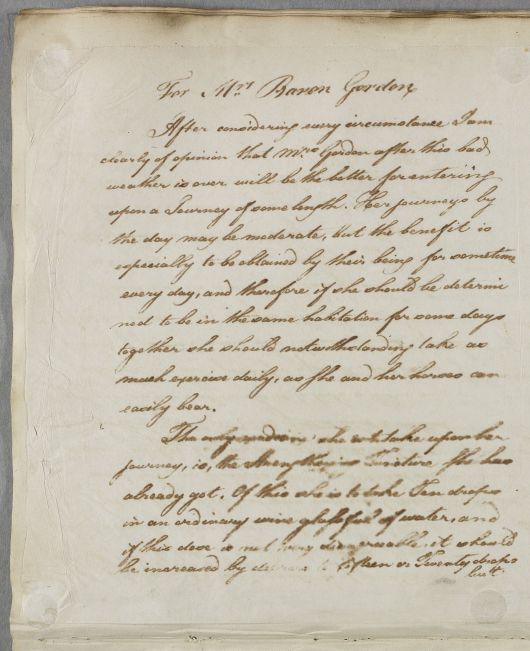 For Mrs Baron Gordon
After considering every circumstance I am
clearly of opinion that Mrs Gordon after this bad
weather is over will be the better for entering
upon a Journey of some length. Her journeys by
the day may be moderate, but the benefit is
especially to be obtained by their being for sometime
every day, and therefore if she should be determi
ned to be in the same habitation for some days
together she should notwithstanding take as
much exercise daily, as she and her horses can
easily bear.
The only medicine she is to take upon her
journey, is, the strengthening Tincture she has
already got. Of this she is to take Ten drops
in an ordinary wine glass full of water, and
if this dose is not very disagreeable, it should
be increased by degrees to fifteen or Twenty drops